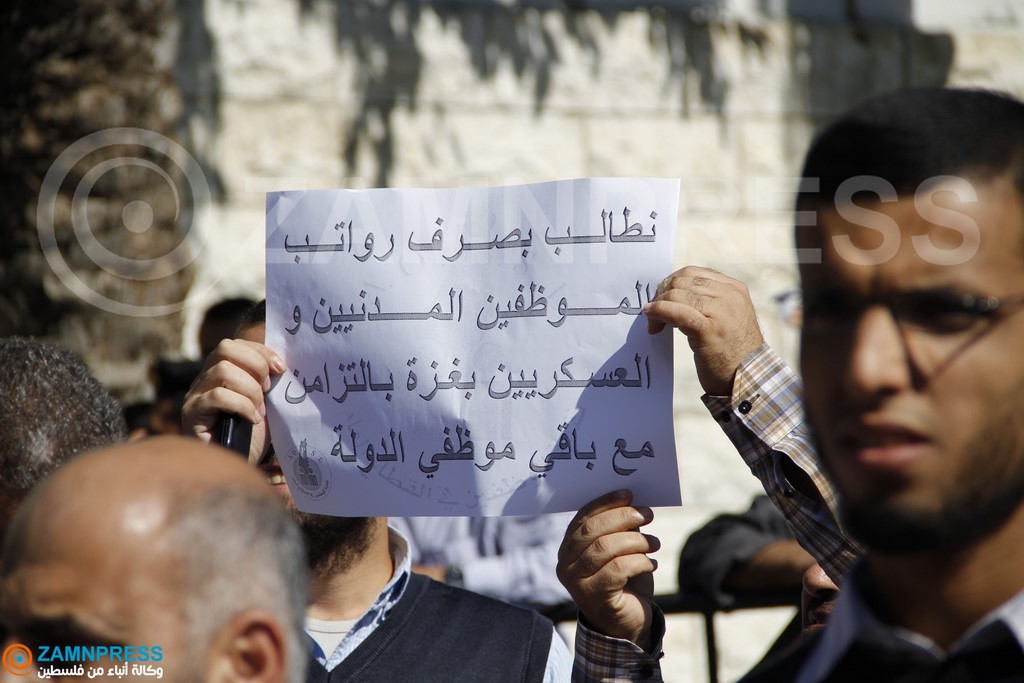 ZAMNPRESS
نطالب بصرف رواتب
الموظفين المدنيين و
العسكريين بغزة بالتزامن
مع باقي موظفي الدولة
ZAMNPRESS
وكالة أنباء من فلسطين